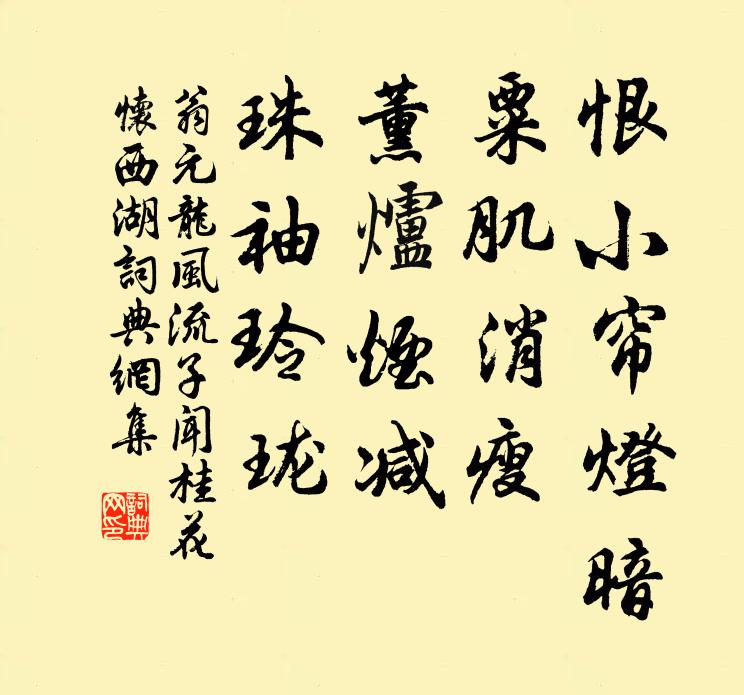 恨小帘燈暗
粟肌消瘦
薰爐煙减
珠袖玲珑
翁元龍風流子闻桂花
懷西湖詞典網集
詞典网印